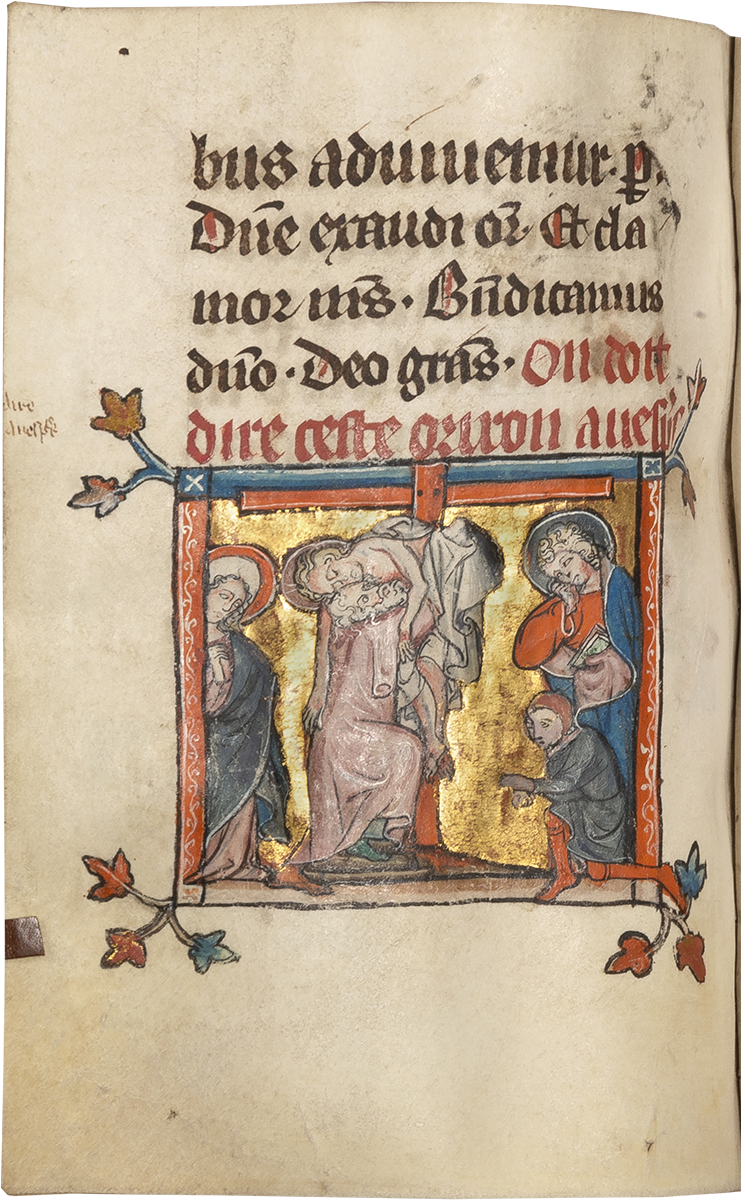 bus adiuuemur · p̄.
Dn̄e exaudi or̄. Et cla
mor m̄s · Bn̄dicamus
dn̄o · Deo grās · On doit
dire ceste orizon
dire